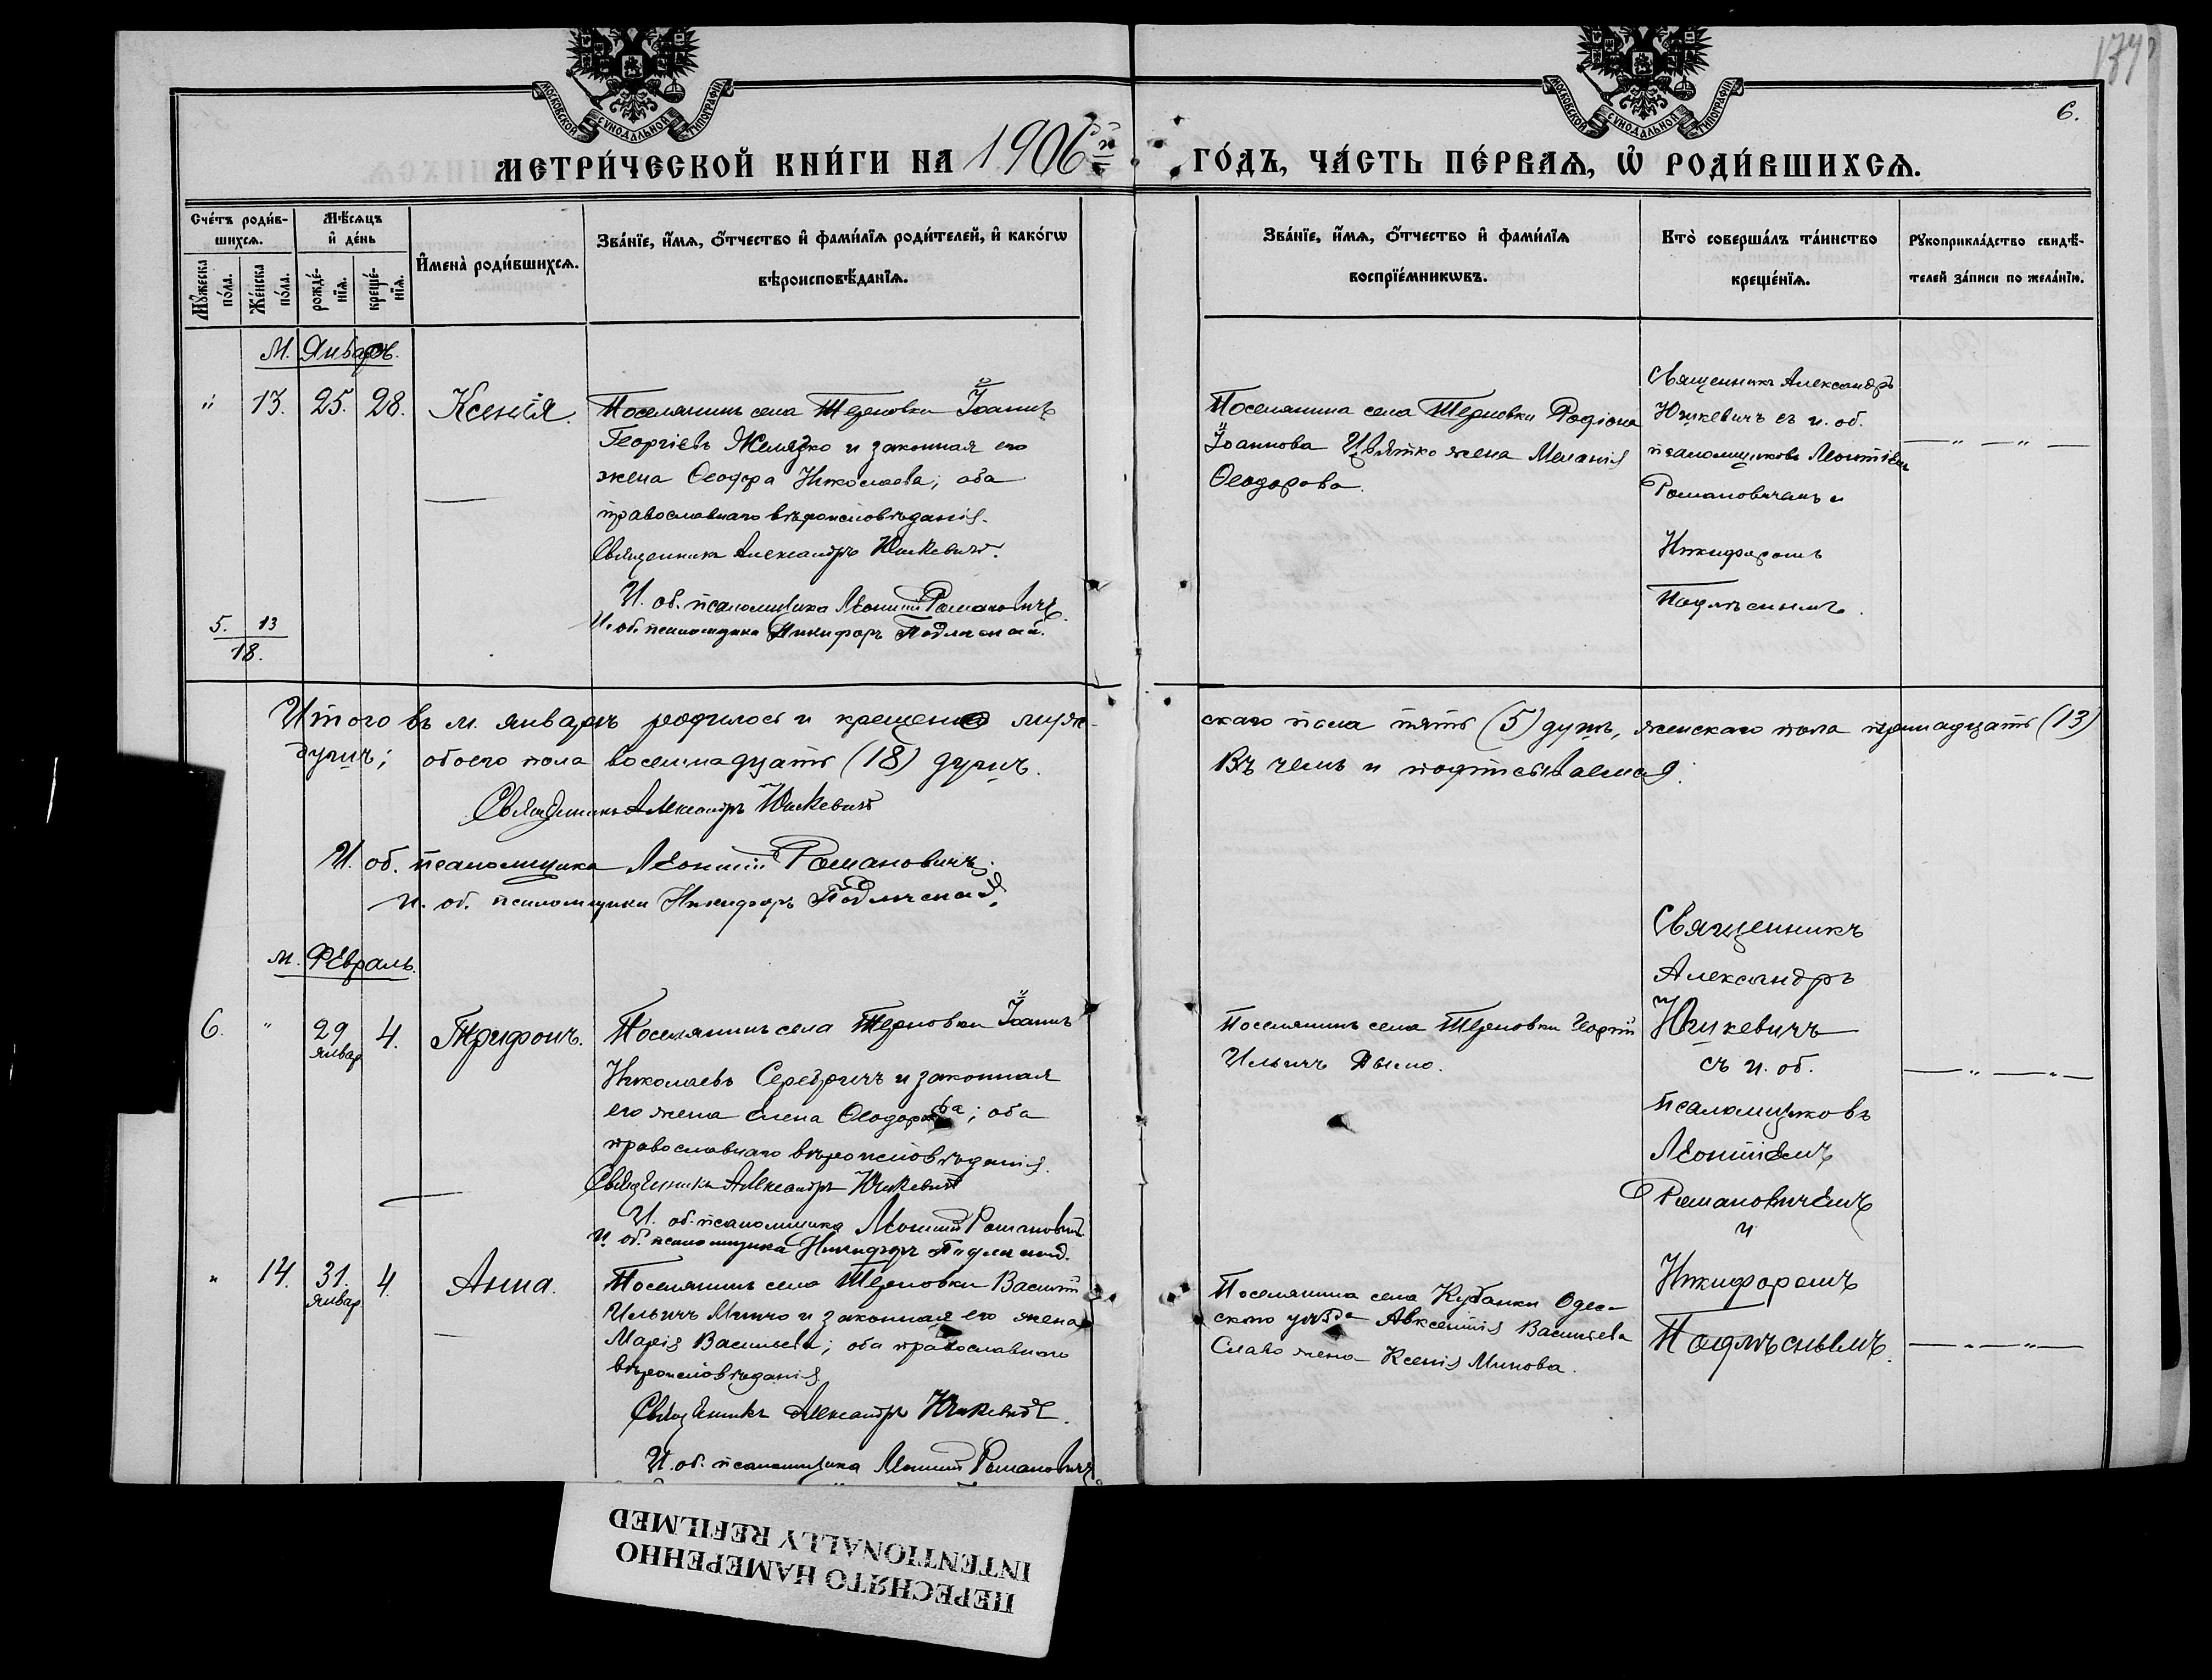 174
6.
МОСКОВСКОЙ СѴНОДАЛЬНОЙ ТИПОГРАФІИ
МОСКОВСКОЙ СѴНОДАЛЬНОЙ ТИПОГРАФІИ
МЕТРИ́ЧЕСКОЙ КНИ́ГИ НА 1906й
ГО́ДЪ, ЧА́СТЬ ПЕ́РВАѦ, Ѽ РОДИ́ВШИХСѦ.
Сче́тъ роди́в-
шихсѧ.
Мꙋ́жеска по́ла.
Же́нска по́ла.
Мѣ́сѧцъ
и҆ де́нь
рожде́-
нїѧ.
креще́-
нїѧ.
И҆мена̀ роди́вшихсѧ.
Зва́нїе, и҆́мѧ, ѻ҆́тчество и҆ фами́лїѧ роди́телей, и҆ како́гѡ
вѣроисповѣ́данїѧ.
Зва́нїе, и҆́мѧ, ѻ҆́тчество и҆ фами́лїѧ
воспрїе́мникѡвъ.
Кто̀ соверша́лъ та́инство
креще́нїѧ.
Рꙋкоприкла́дство свидѣ́-
телей за́писи по жела́нїю.
М. Январь.
" 13. 25. 28. Ксенія.
Поселянинъ села Терновки Іоаннъ
Георгіевъ Желязко и законная его
жена Ѳеодора Николаева; оба
православнаго вѣроисповѣданія.
Священникъ Александръ Юшкевичъ.
И. об. псаломщика Леонтій Романовичъ.
И. об. псаломщика Никифоръ Подлѣсный.
5. 13
18.
Поселянина села Терновки Родіона
Іоаннова Цвятко жена Меланія
Ѳеодорова.
Священникъ Александръ
Юшкевичъ съ и. об.
псаломщиковъ Леонтіемъ
Романовичемъ и
Никифоромъ
Подлѣснымъ.
— " — " —
Итого въ м. январѣ родилось и крещено муж-
скаго пола пять (5) душъ, женскаго пола тринадцать (13)
душъ; обоего пола восемнадцать (18) душъ.
Въ чемъ и подписываемся:
Священникъ Александръ Юшкевичъ
И. об. псаломщика Леонтій Романовичъ.
И. об. псаломщика Никифоръ Подлѣсный.
м. Февраль.
6. " 29 январ 4. Трифонъ.
Поселянинъ села Терновки Іоаннъ
Николаевъ Середничъ и законная
его жена Елена Ѳеодорова; оба
православнаго вѣроисповѣданія.
Священникъ Александръ Юшкевичъ
И. об. псаломщика Леонтій Романовичъ.
И. об. псаломщика Никифоръ Подлѣсный.
Поселянинъ села Терновки Георгій
Ильичъ Дымо.
Священникъ
Александръ
Юшкевичъ
съ и. об.
псаломщиковъ
Леонтіемъ
Романовичемъ
и
Никифоромъ
Подлѣснымъ.
— " — " —
" 14. 31. январ 4. Анна.
Поселянинъ села Терновки Василій
Ильичъ Минчо и законная его жена
Марія Васильева; оба православнаго
вѣроисповѣданія
Священникъ Александръ Юшкевичъ.
И. об. псаломщика Леонтій Романовичъ
Поселянина села Кубанки Одес-
скаго уѣзда Авксентія Васильева
Славо жена Ксенія Минова.
— " — " —
ПЕРЕСНЯТО НАМЕРЕННО
INTENTIONALLY REFILMED